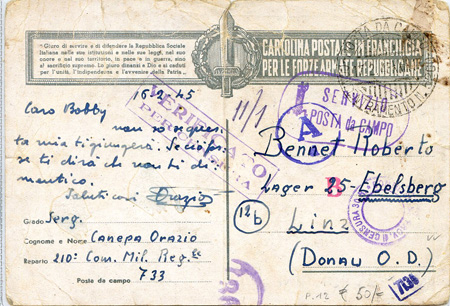 Giuro di servire e di difendere la Repubblica Sociale
Italiana nelle sue istituzioni e nelle sue leggi, nel suo
onore e nel suo territorio, in pace e in guerra, sino
al sacrificio supremo. Lo giuro dinanzi a Dio e ai caduti
per l'unità, l'indipendenza e l'avvenire della Patria.
CARTOLINA POSTALE IN FRANCHIGIA
PER LE FORZE ARMATE REPUBBLICANE
POSTA DA CAMPO
16-2-45
11/1
Caro Bobby
non so se questa
mia ti giungerà. Se ciò fosse
ti dirà che non ti di
mentico.
Saluticari Orazio
VERIFICATO
PER CENSURA
SERVIZIO
POSTA da CAMPO
A
Bennet Roberto
Lager 25-Ebelsberg
12b
Linz
(Donau O. D.)
Grado Serg.
Cognome e Nome CANEPA ORAZIO
Reparto 210° Com. Mil. Reg.le
Posta da campo 733
P.12 € 50/-
7136